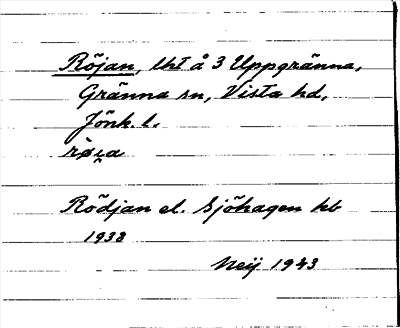 Röjan, lht å 3 Uppgränna,
Gränna sn, Vista hd,
Jönk. l.
Rödjan el. Sjöhagen kb
1938
Neij 1943